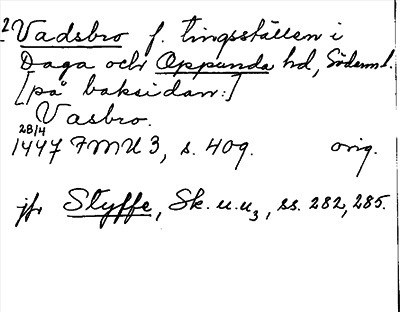 2 Vadsbro f. tingsställen i
Daga och Oppunda hd, Söderml.
[på baksidan:]
Vasbro.
28/4
1447 FMU 3, s. 409. orig.
jfr Styffe, Sk. u. u₃, ss. 282, 285.